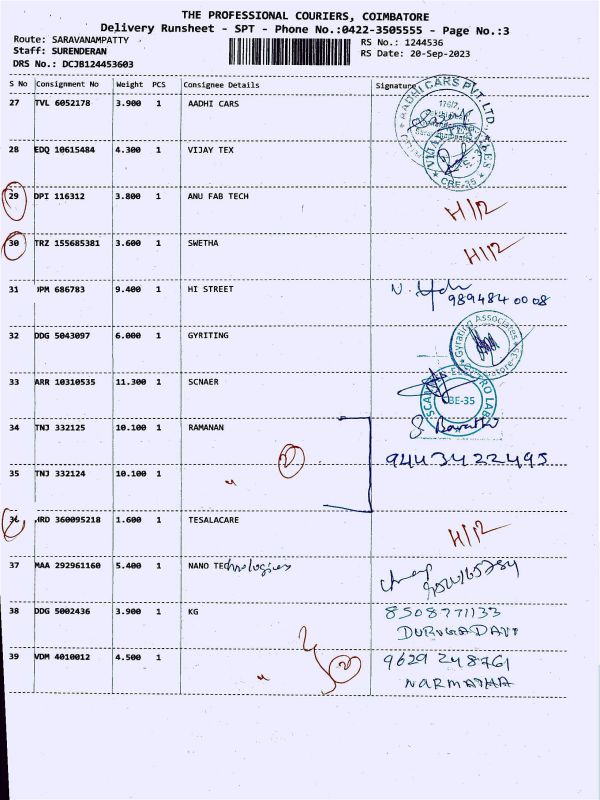 THE PROFESSIONAL COURIERS, COIMBATORE
Delivery Runsheet - SPT - Phone No.:0422-3505555 - Page No.:3
Route: SARAVANAMPATTY
Staff: SURENDERAN
DRS No.: DCJB124453603
RS No.: 1244536
RS Date: 20-Sep-2023
S No Consignment No Weight PCS Consignee Details Signature
27 TVL 6052178 3.900 1 AADHI CARS
AADHI CARS PVT. LTD.
28 EDQ 10615484 4.300 1 VIJAY TEX
CBE-35
29 DPI 116312 3.800 1 ANU FAB TECH H/12
30 TRZ 155685381 3.600 1 SWETHA H/12
31 JPM 686783 9.400 1 HI STREET
9894840008
32 DDG 5043097 6.000 1 GYRITING
Gyrating Associates
33 ARR 10310535 11.300 1 SCNAER
BE-35
34 TNJ 332125 10.100 1 RAMANAN
35 TNJ 332124 10.100 1 " 2 9443422495
36 HRD 360095218 1.600 1 TESALACARE H/12
37 MAA 292961160 5.400 1 NANO TEChnologies
38 DDG 5002436 3.900 1 KG 8508771133
39 VDM 4010012 4.500 1 " 2 9629248761
NARMATHA